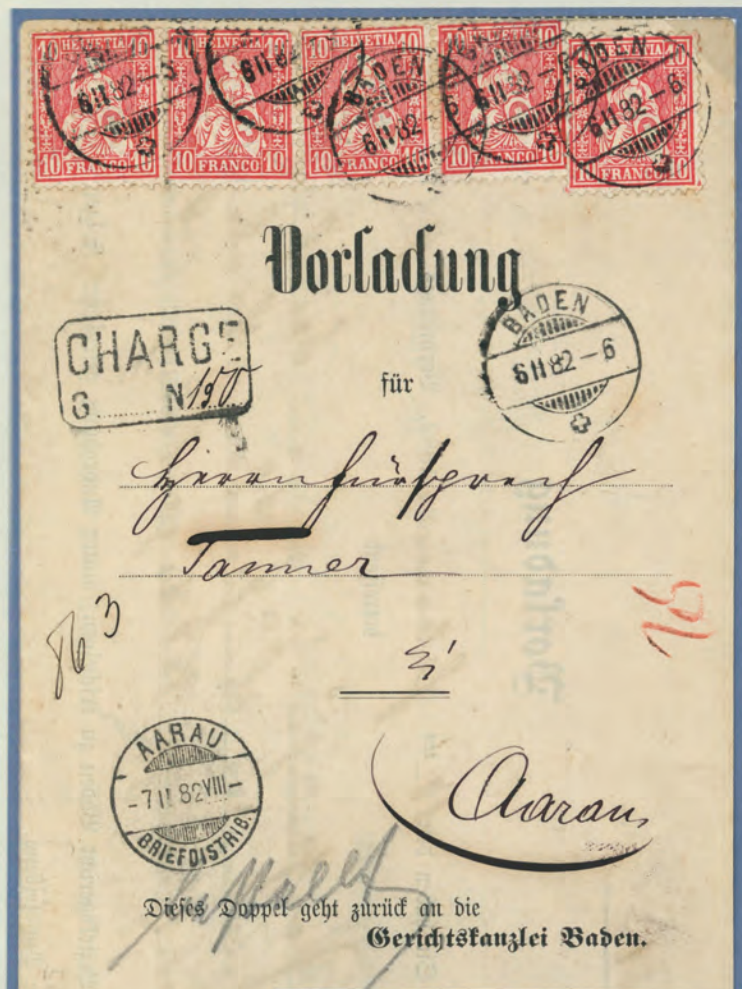 10 HELVETIA 10 10 HELVETIA 10 10 HELVETIA 10 10 HELVETIA 10 10 HELVETIA 10
10 FRANCO 10 10 FRANCO 10 10 FRANCO 10 10 FRANCO 10 10 FRANCO 10
BADEN
6 II 82 – 6
Vorladung
CHARGE
G N 190
BADEN
6 II 82 – 6
für
Herrn Fürsprech
Tanner
863
Aarau
AARAU
– 7 II 82 VIII –
BRIEFDISTRIB.
Dieses Doppel geht zurück an die
Gerichtskanzlei Baden.